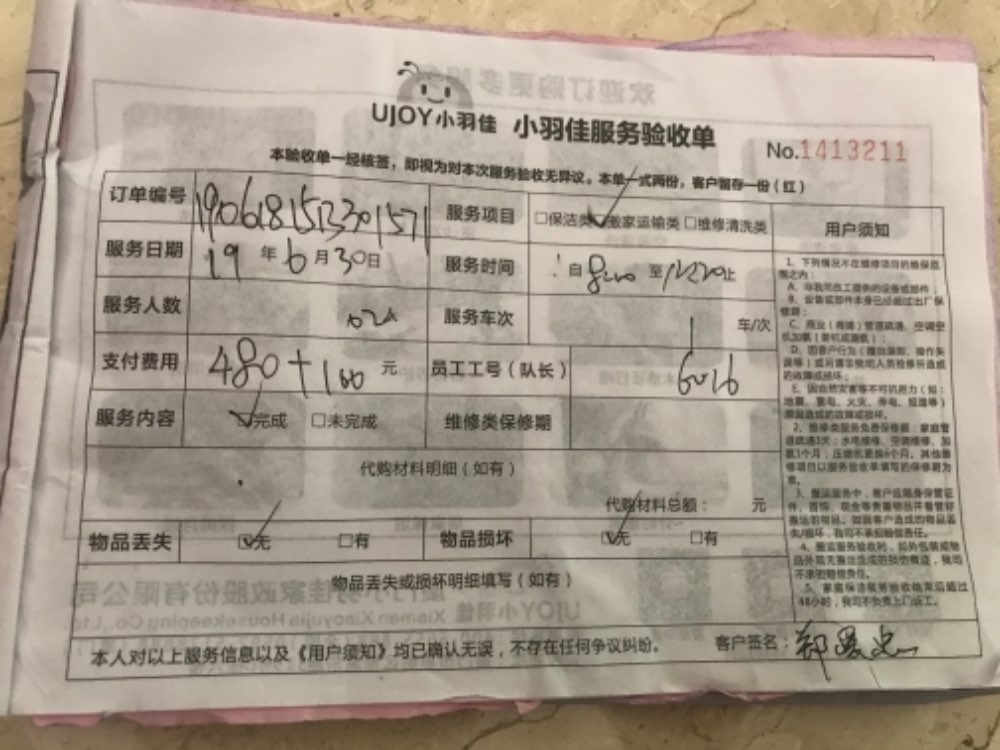 UJOY小羽佳 小羽佳服务验收单
No.1413211
本验收单一经核签，即视为对本次服务验收无异议。本单一式两份，客户留存一份（红）
订单编号 1906181513301571 服务项目 □保洁类 搬家运输类 □维修清洗类
服务日期 19 年 6 月 30 日 服务时间 自 至 止
服务人数 服务车次 1 车/次
支付费用 480+100 元 员工工号（队长） 6016
服务内容 完成 □未完成 维修类保修期
代购材料明细（如有）
代购材料总额： 元
物品丢失 无 □有 物品损坏 无 □有
物品丢失或损坏明细填写（如有）
本人对以上服务信息以及《用户须知》均已确认无误，不存在任何争议纠纷。 客户签名：
用户须知
1、下列情况不在维修项目的维保范
围之内：
A、非我司员工提供的设备或部件；
B、设备或部件本身已经超过出厂保
修期；
C、商业（商铺）管道疏通、空调空
D、因客户行为
的故障或损坏；
E、因自然灾害等不可抗原力（如：
地震、雷电、火灾、停电、短路等）
原因造成的故障或损坏。
2、维修类服务免费保修期：家庭管
道疏通3天；水电维修、空调维修、加
氨1个月；压缩机更换6个月。其他维
修项目以服务验收单填写的保修期为
准。
3、搬运服务中，客户应随身保管证
件、首饰、现金等贵重物品并看管好
搬运的物品。如因客户造成的物品丢
失/损坏，我司不承担赔偿责任。
4、搬运服务验收时，如外包装或物
不承担赔偿责任。
5、家庭保洁服务验收结束后超过
48小时，我司不负责上门返工。